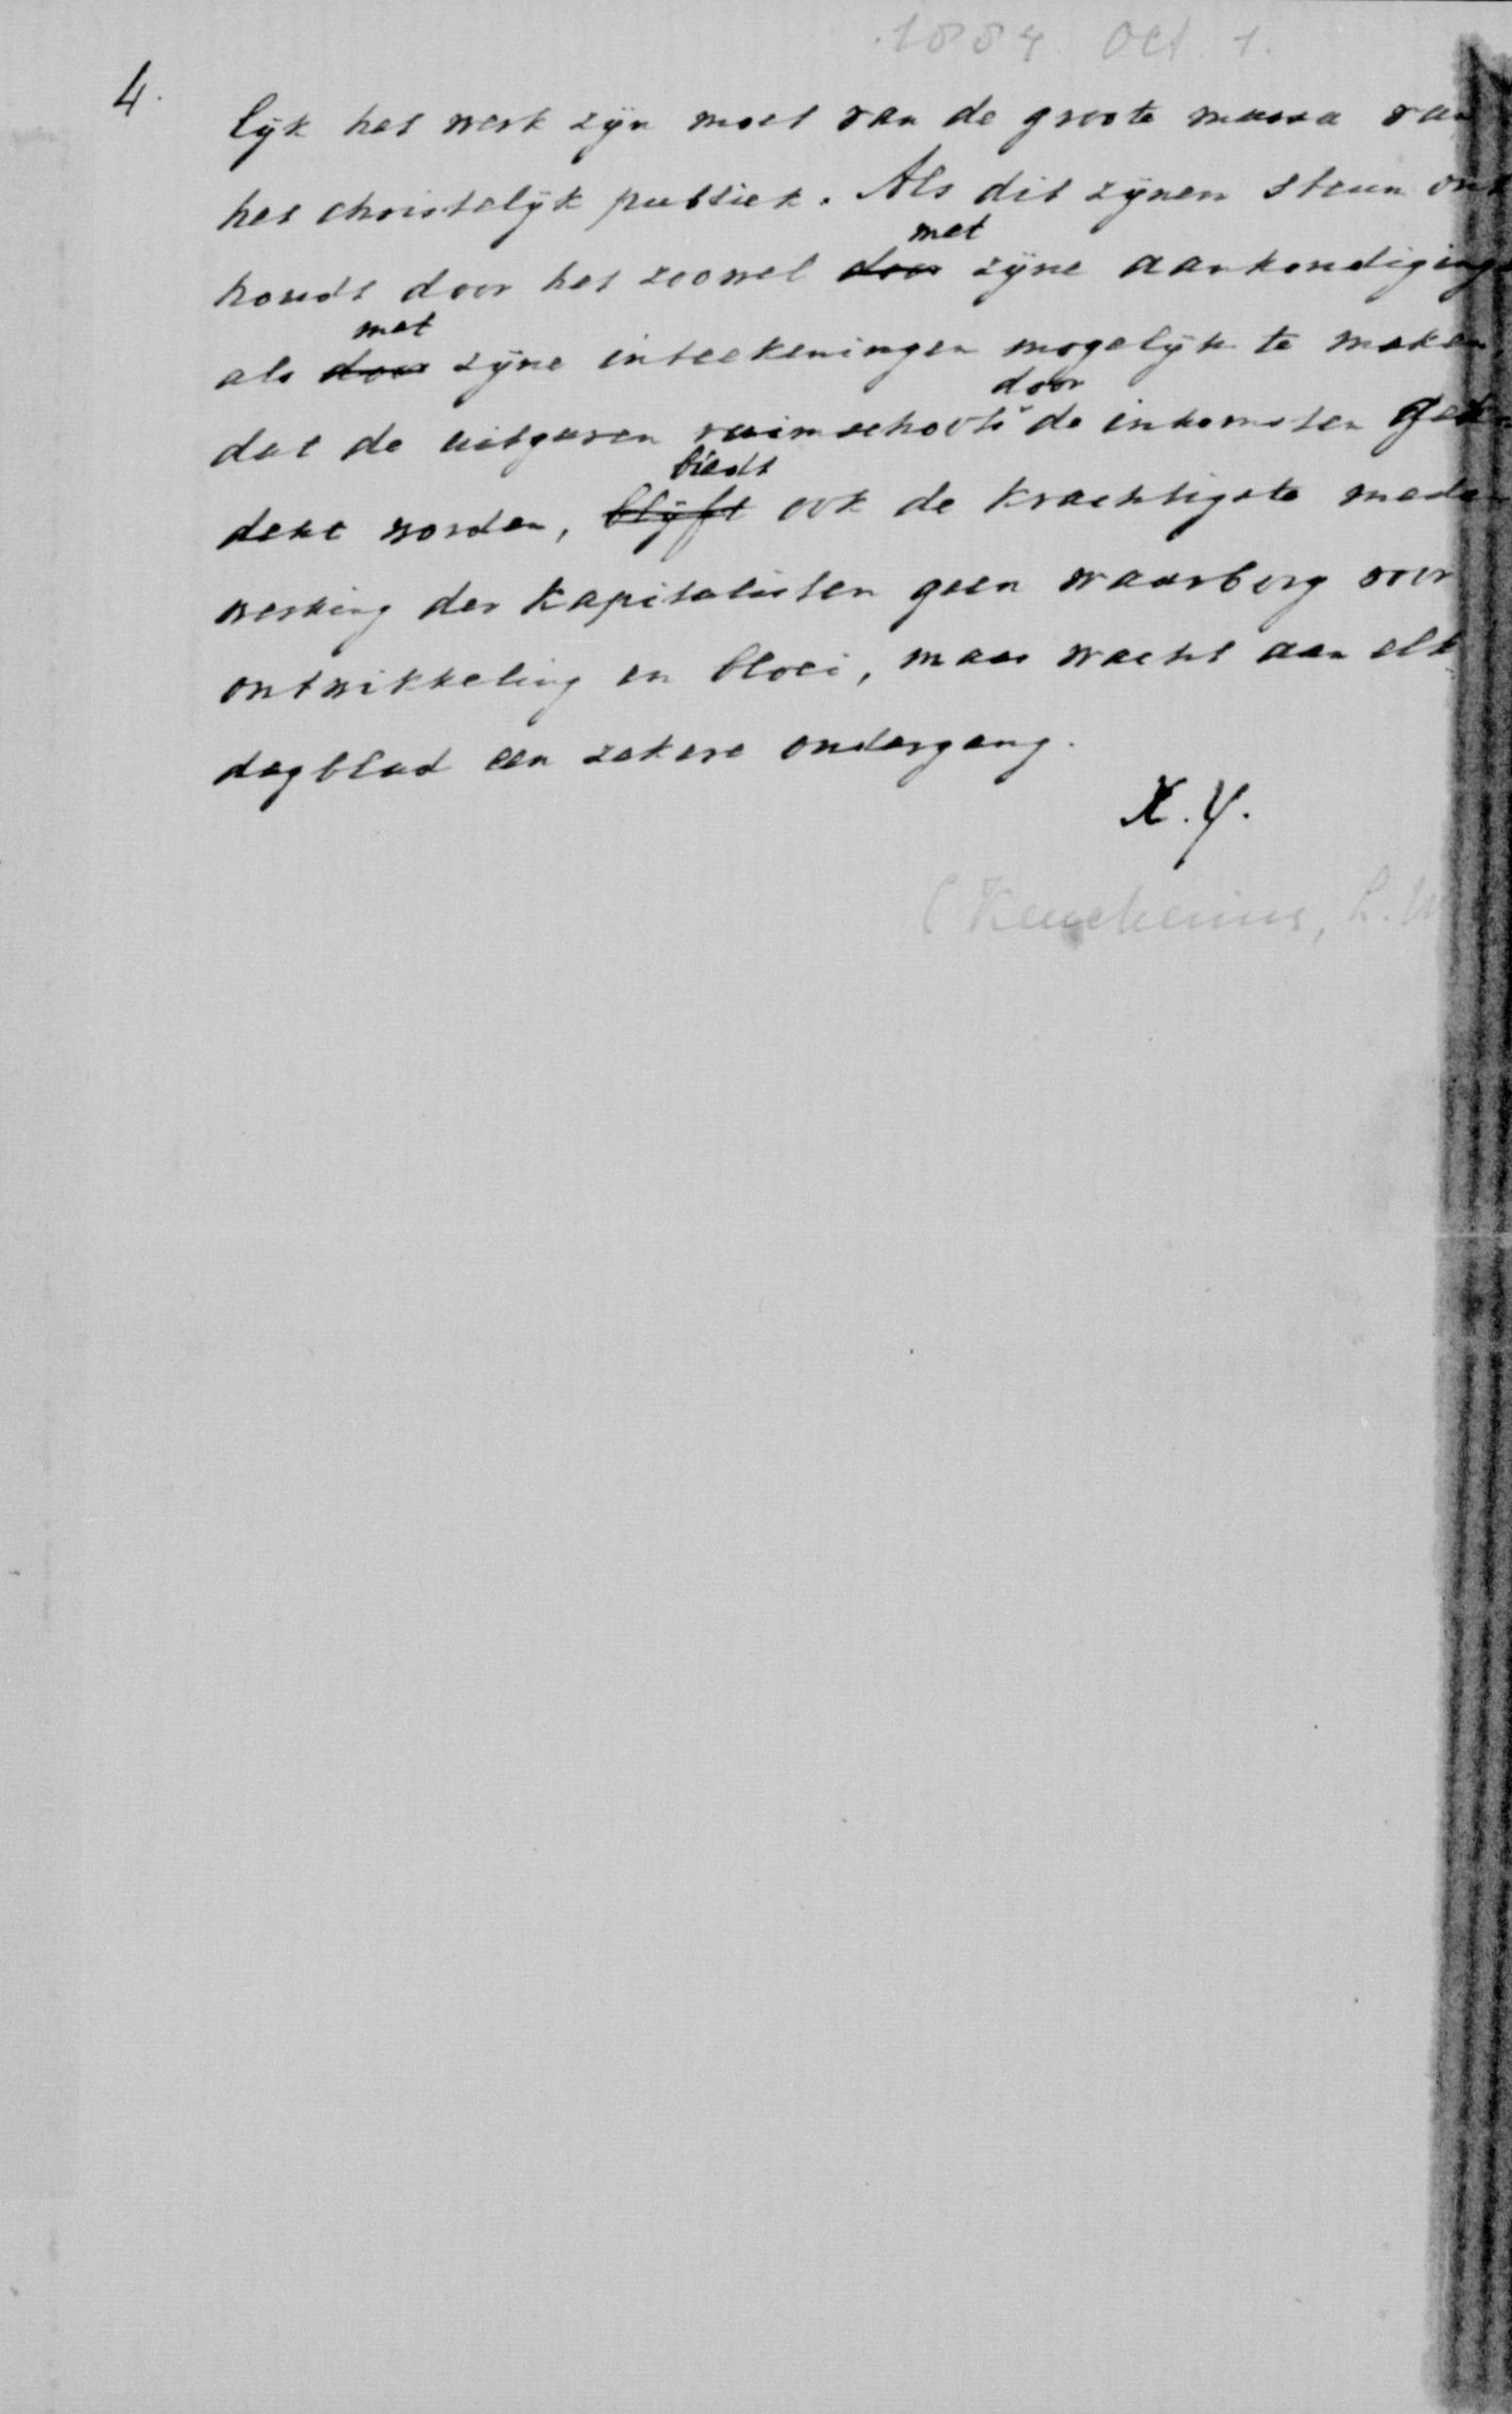 1884 Oct. 1.
4.
lijk het werk zijn moet van de groote massa van
het christelijk publiek. Als dit zijnen steun ont
houdt door het zoowel door met zijne aankondiging
als door met zijne inteekeningen mogelijk te maken
dat de uitgaven ruimschoots door de inkomsten ged
dekt worden, blijft biedt ook de krachtigste mede
werking der kapitalisten geen waarborg voor
ontwikkeling en bloei, maar wacht aan elk
dagblad een zekere ondergang.
X. Y.
(Keuchenius, L. W